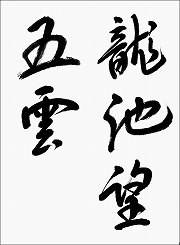 龍池望
五雲